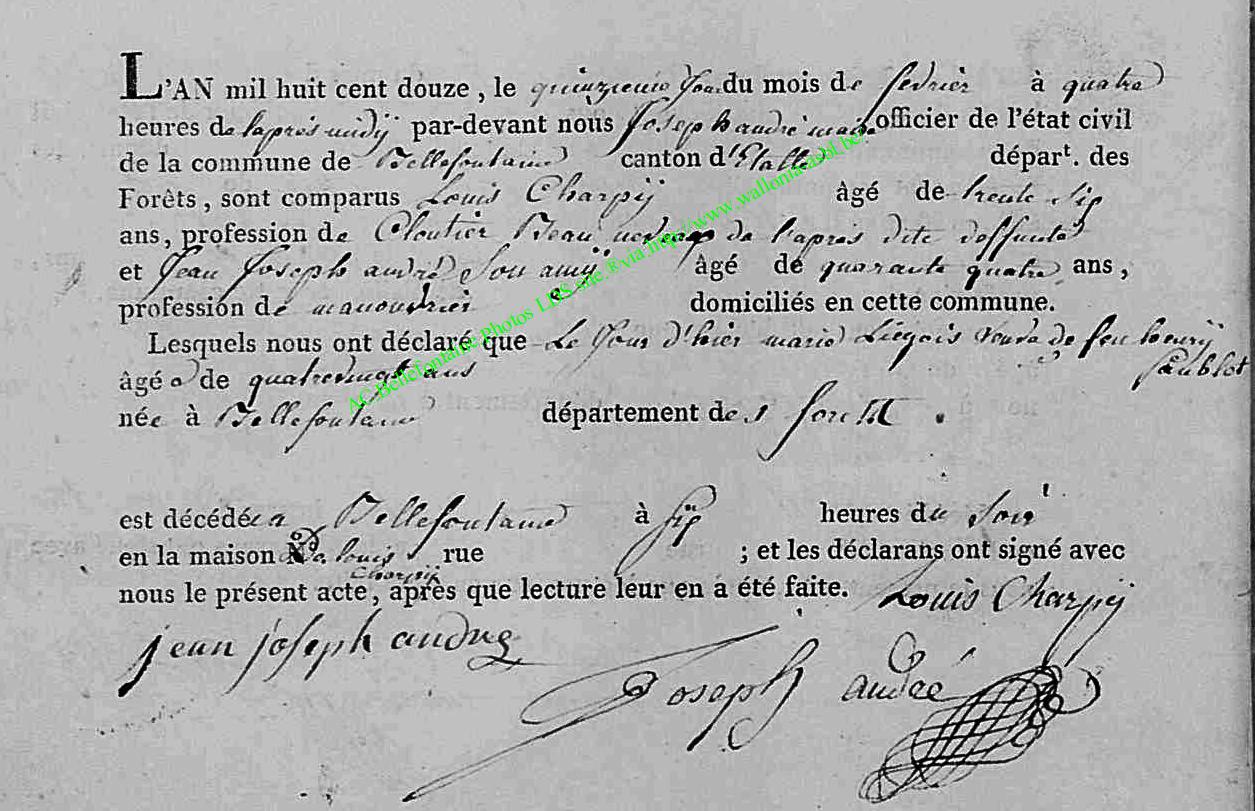 L'AN mil huit cent douze, le quinzieme jour du mois de fevrier à quatre
heures de l'apres midij par-devant nous Joseph andré maire officier de l'état civil
de la commune de Bellefontaine canton d'Etalle départ. des
Forêts, sont comparus Louis Charpij âgé de trente six
ans, profession de Cloutier Beau neveux de l'apres dite deffunte
et Jean Joseph andré Son amij âgé de quarante quatre ans,
profession de manouvrier domiciliés en cette commune.
Lesquels nous ont déclaré que Le Jour d'hier marie Liegois veuve de feu henrij
âgée de quatrevingt ans
née à Bellefontaine département des forêts.
est décédée a Bellefontaine à six heures du soir
en la maison de louis rue ; et les déclarans ont signé avec
Charpij
nous le présent acte, après que lecture leur en a été faite. Louis Charpij
jean joseph andre
Joseph andré
AC Bellefontaine Photos LDS site.®via.http://www.wallonia.asbl.be/